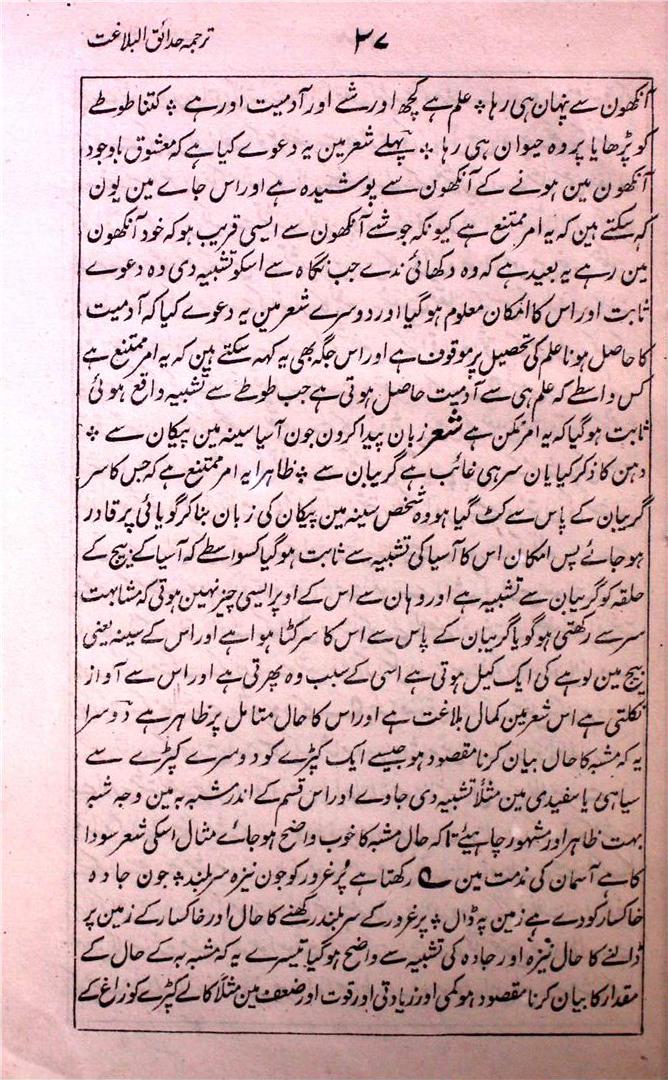 ترجمہ حدائق البلاغت ۳۷
آنکھون سے پنہان ہی رہا ؞ علم ہے کچھ اور شے اور آدمیت اور ہے ؞ کتنا طوطے
کو پڑھایا پر وہ حیوان ہی رہا ؞ پہلے شعر مین یہ دعوے کیا ہے کہ معشوق باوجود
آنکھون مین ہونے کے آنکھون سے پوشیدہ ہے اور اس جاے مین یون
کہہ سکتے ہین کہ یہ امر ممتنع ہے کیونکہ جو شے آنکھون سے ایسی قریب ہو کہ خود آنکھون
مین رہے یہ بعید ہے کہ وہ دکھائی ندے جب نگاہ سے اسکو تشبیہ دی وہ دعوے
ثابت اور اس کا امکان معلوم ہو گیا اور دوسرے شعر مین یہ دعوے کیا کہ آدمیت
کا حاصل ہونا علم کی تحصیل پر موقوف ہے اور اس جگہ بھی یہ کہہ سکتے ہین کہ یہ امر ممتنع ہے
کس واسطے کہ علم ہی سے آدمیت حاصل ہوتی ہے جب طوطے سے تشبیہ واقع ہوئی
ثابت ہو گیا کہ یہ امر ممکن ہے شعر زبان پیدا کرون جون آسیا سینہ مین پیکان سے ؞
دہن کا ذکر کیا یان سر ہی غائب ہے گریبان سے ؞ ظاہرا یہ امر ممتنع ہے کہ جس کا سر
گریبان کے پاس سے کٹ گیا ہو وہ شخص سینہ مین پیکان کی زبان بنا کر گویائی پر قادر
ہو جائے پس امکان اس کا آسیا کی تشبیہ سے ثابت ہو گیا کسواسطے کہ آسیا کے بیچ کے
حلقہ کو گریبان سے تشبیہ ہے اور وہان سے اس کے اوپر ایسی چیز نہین ہوتی کہ مشابہت
سر سے رکھتی ہو گویا گریبان کے پاس سے اس کا سر کٹا ہوا ہے اور اس کے سینہ یعنی
بیچ مین لوہے کی ایک کیل ہوتی ہے اسی کے سبب وہ پھرتی ہے اور اس سے آواز
نکلتی ہے اس شعر مین کمال بلاغت ہے اور اس کا حال متامل پر ظاہر ہے دوسرا
یہ کہ مشبہ کا حال بیان کرنا مقصود ہو جیسے ایک کپڑے کو دوسرے کپڑے سے
سیاہی یا سفیدی مین مثلاً تشبیہ دی جاوے اور اس قسم کے اندر مشبہ بہ مین وجہ شبہ
بہت ظاہر اور مشہور چاہیئے تاکہ حال مشبہ کا خوب واضح ہو جائے مثال اسکی شعر سودا
کا ہے آسمان کی مذمت مین ؎ رکھتا ہے پُر غرور کو جون نیزہ سر بلند ؞ جون جادہ
خاکسار کو دے ہے زمین پہ ڈال ؞ پر غرور کے سر بلند رکھنے کا حال اور خاکسار کے زمین پر
ڈالنے کا حال نیزہ اور جادہ کی تشبیہ سے واضح ہو گیا تیسرے یہ کہ مشبہ بہ کے حال کے
مقدار کا بیان کرنا مقصود ہو کمی اور زیادتی اور قوت اور ضعف مین مثلاً کالے کپڑے کو زاغ کے